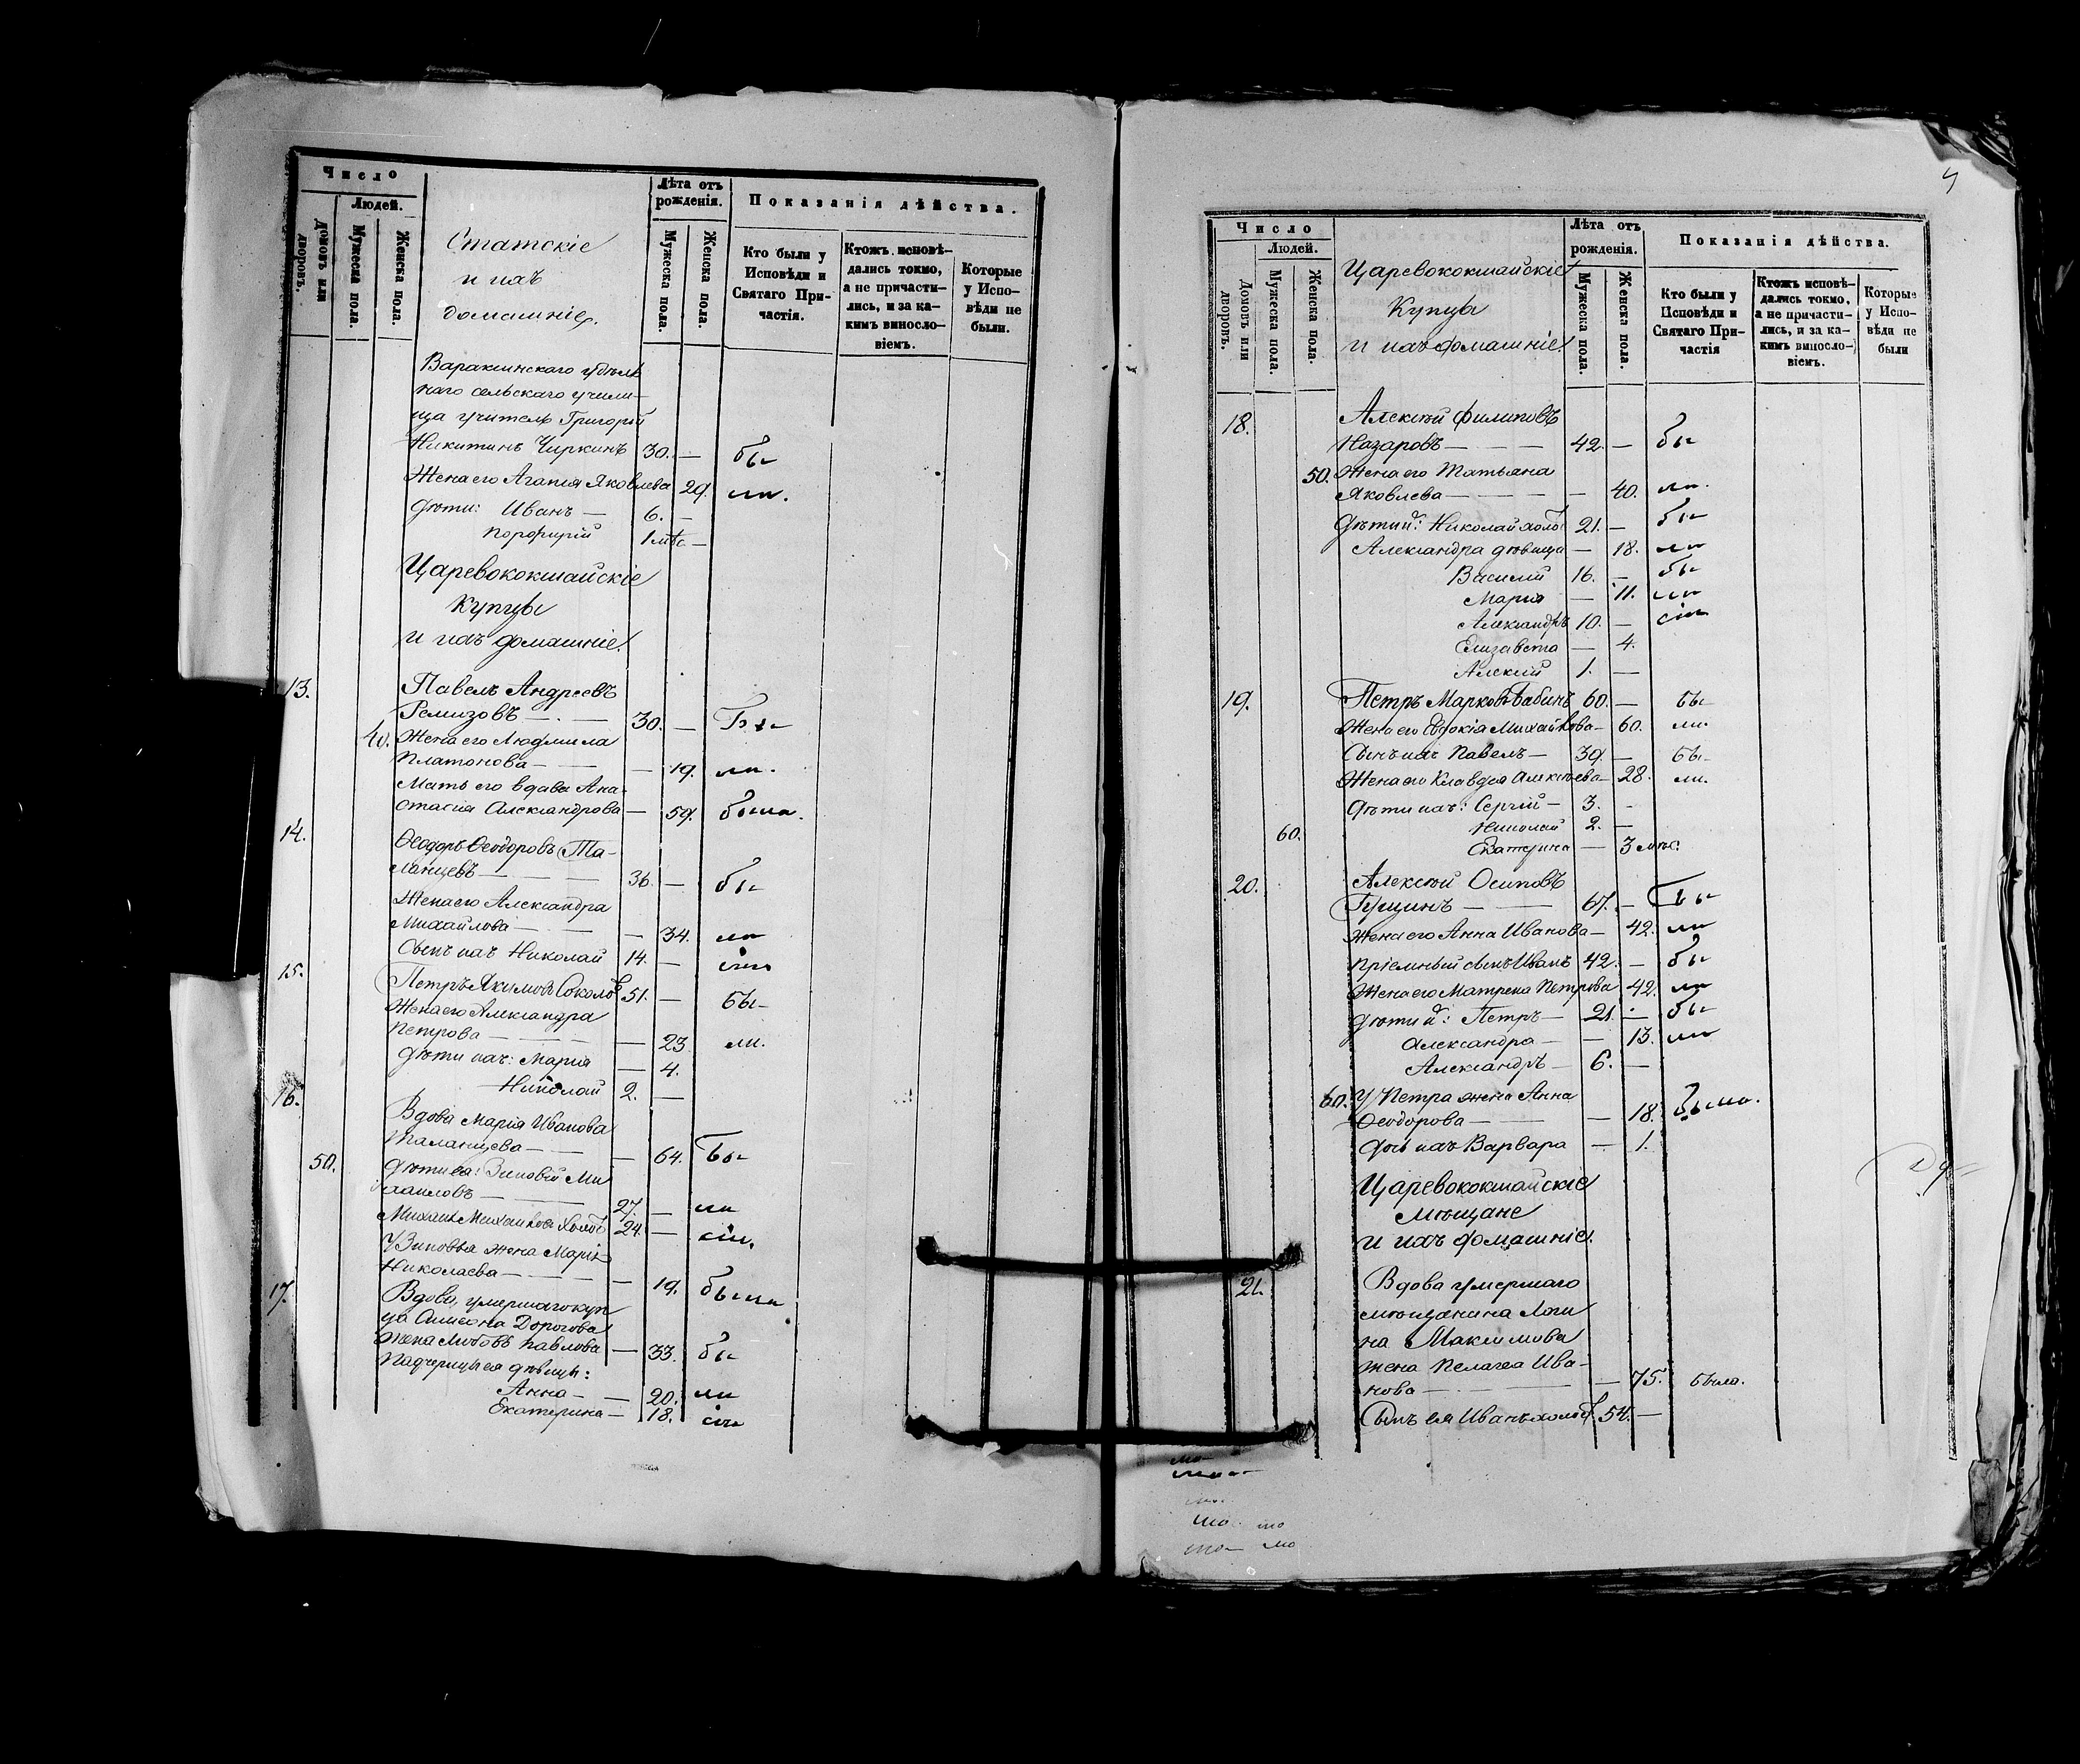 Число
Людей.
Домовъ или дворовъ.
Мужеска пола.
Женска пола.
Статскіе
и ихъ
домашніе.
Лѣта отъ рожденія.
Мужеска пола.
Женска пола.
Показанія дѣйства.
Кто были у Исповѣди и Святаго Причастія.
Ктожъ исповѣдались токмо, а не причастились, и за какимъ винословіемъ.
Которые у Исповѣди не были.
Вараксинскаго удѣль
наго сельскаго учили-
ща учитель Григорій
Никитинъ Чиркинъ 30. — бы
Жена его Агапія Яковлева 29. ли.
Дѣти: Иванъ — 6. —
Порфирій 1 мѣс —
Царевококшайскіе
Купцы
и ихъ домашніе.
13. Павелъ Андреевъ
Ремизовъ — 30. — Бы
40. Жена его Людмила
Платонова — — 19. ли.
Мать его вдова Ана-
стасія Александрова — 59. была.
14. Ѳеодоръ Ѳеодоровъ Та-
ланцевъ — 36. — бы
Жена его Александра
Михайлова — — 34. ли
Сынъ ихъ Николай 14. —
15. Петръ Якимовъ Соколовъ 51. — Бы-
Жена его Александра
Петрова — — 23 ли.
Дѣти ихъ: Марія — 4.
Николай 2. —
16. Вдова Марія Иванова
Таланцева — — 64. Бы
50. Дѣти ея: Зиновій Ми
хаиловъ — 27. — ли
Михаилъ Михаиловъ холост 24. — сіи.
У Зиновья жена Марія
Николаева — — 19. были
17. Вдова, умершаго куп
ца Симеона Дорогова
жена Любовь Павлова — 33. бы
Падчерицы ея дѣвицы:
Анна — — 20. ли
Екатерина — 18. сіи
Число
Людей.
Домовъ или дворовъ.
Мужеска пола.
Женска пола.
Царевококшайскіе
Купцы
и ихъ домашніе.
Лѣта отъ рожденія.
Мужеска пола.
Женска пола.
Показанія дѣйства.
Кто были у Исповѣди и Святаго Причастія
Ктожъ исповѣдались токмо, а не причастились, и за какимъ винословіемъ.
Которые у Исповѣди не были
18. Алексѣй Филиповъ
Назаровъ — — — 42. — бы
50. Жена его Татьяна
Яковлева — — — — 40. ли.
Дѣти и: Николай холос 21. — бы
Александра дѣвица — 18. ли
Василій 16. — бы
Марія — 11. ли
Александръ 10. — сіи
Елизавета — 4.
Алексій 1. —
19. Петръ Марковъ Бабинъ 60. — Бы
Жена его Евдокія Михайлова — 60. ли.
Сынъ ихъ Павелъ — 39. — Бы-
Жена его Клавдія Алексѣева — 28. ли.
Дѣти ихъ: Сергій — 3. -
60. Николай 2. —
Екатерина — 3 мѣс.
20. Алексѣй Осиповъ
Гущинъ — — 67. — Бы
Жена его Анна Иванова — 42. ли
Пріемный сынъ Иванъ 42. — бы
Жена его Матрена Петрова 42. ли
Дѣти и: Петръ — 21. — бы
Александра — — 13. ли
Александръ — 6. —
60. У Петра жена Анна
Ѳеодорова — — — 18. были.
Дочь ихъ Варвара — 1.
Царевококшайскіе
мѣщане
и ихъ домашніе.
21. Вдова умершаго
мѣщанина Логи
на Максимова
жена Пелагея Ива-
нова — — — 75. была.
Сынъ ея Иванъ холост 54. —